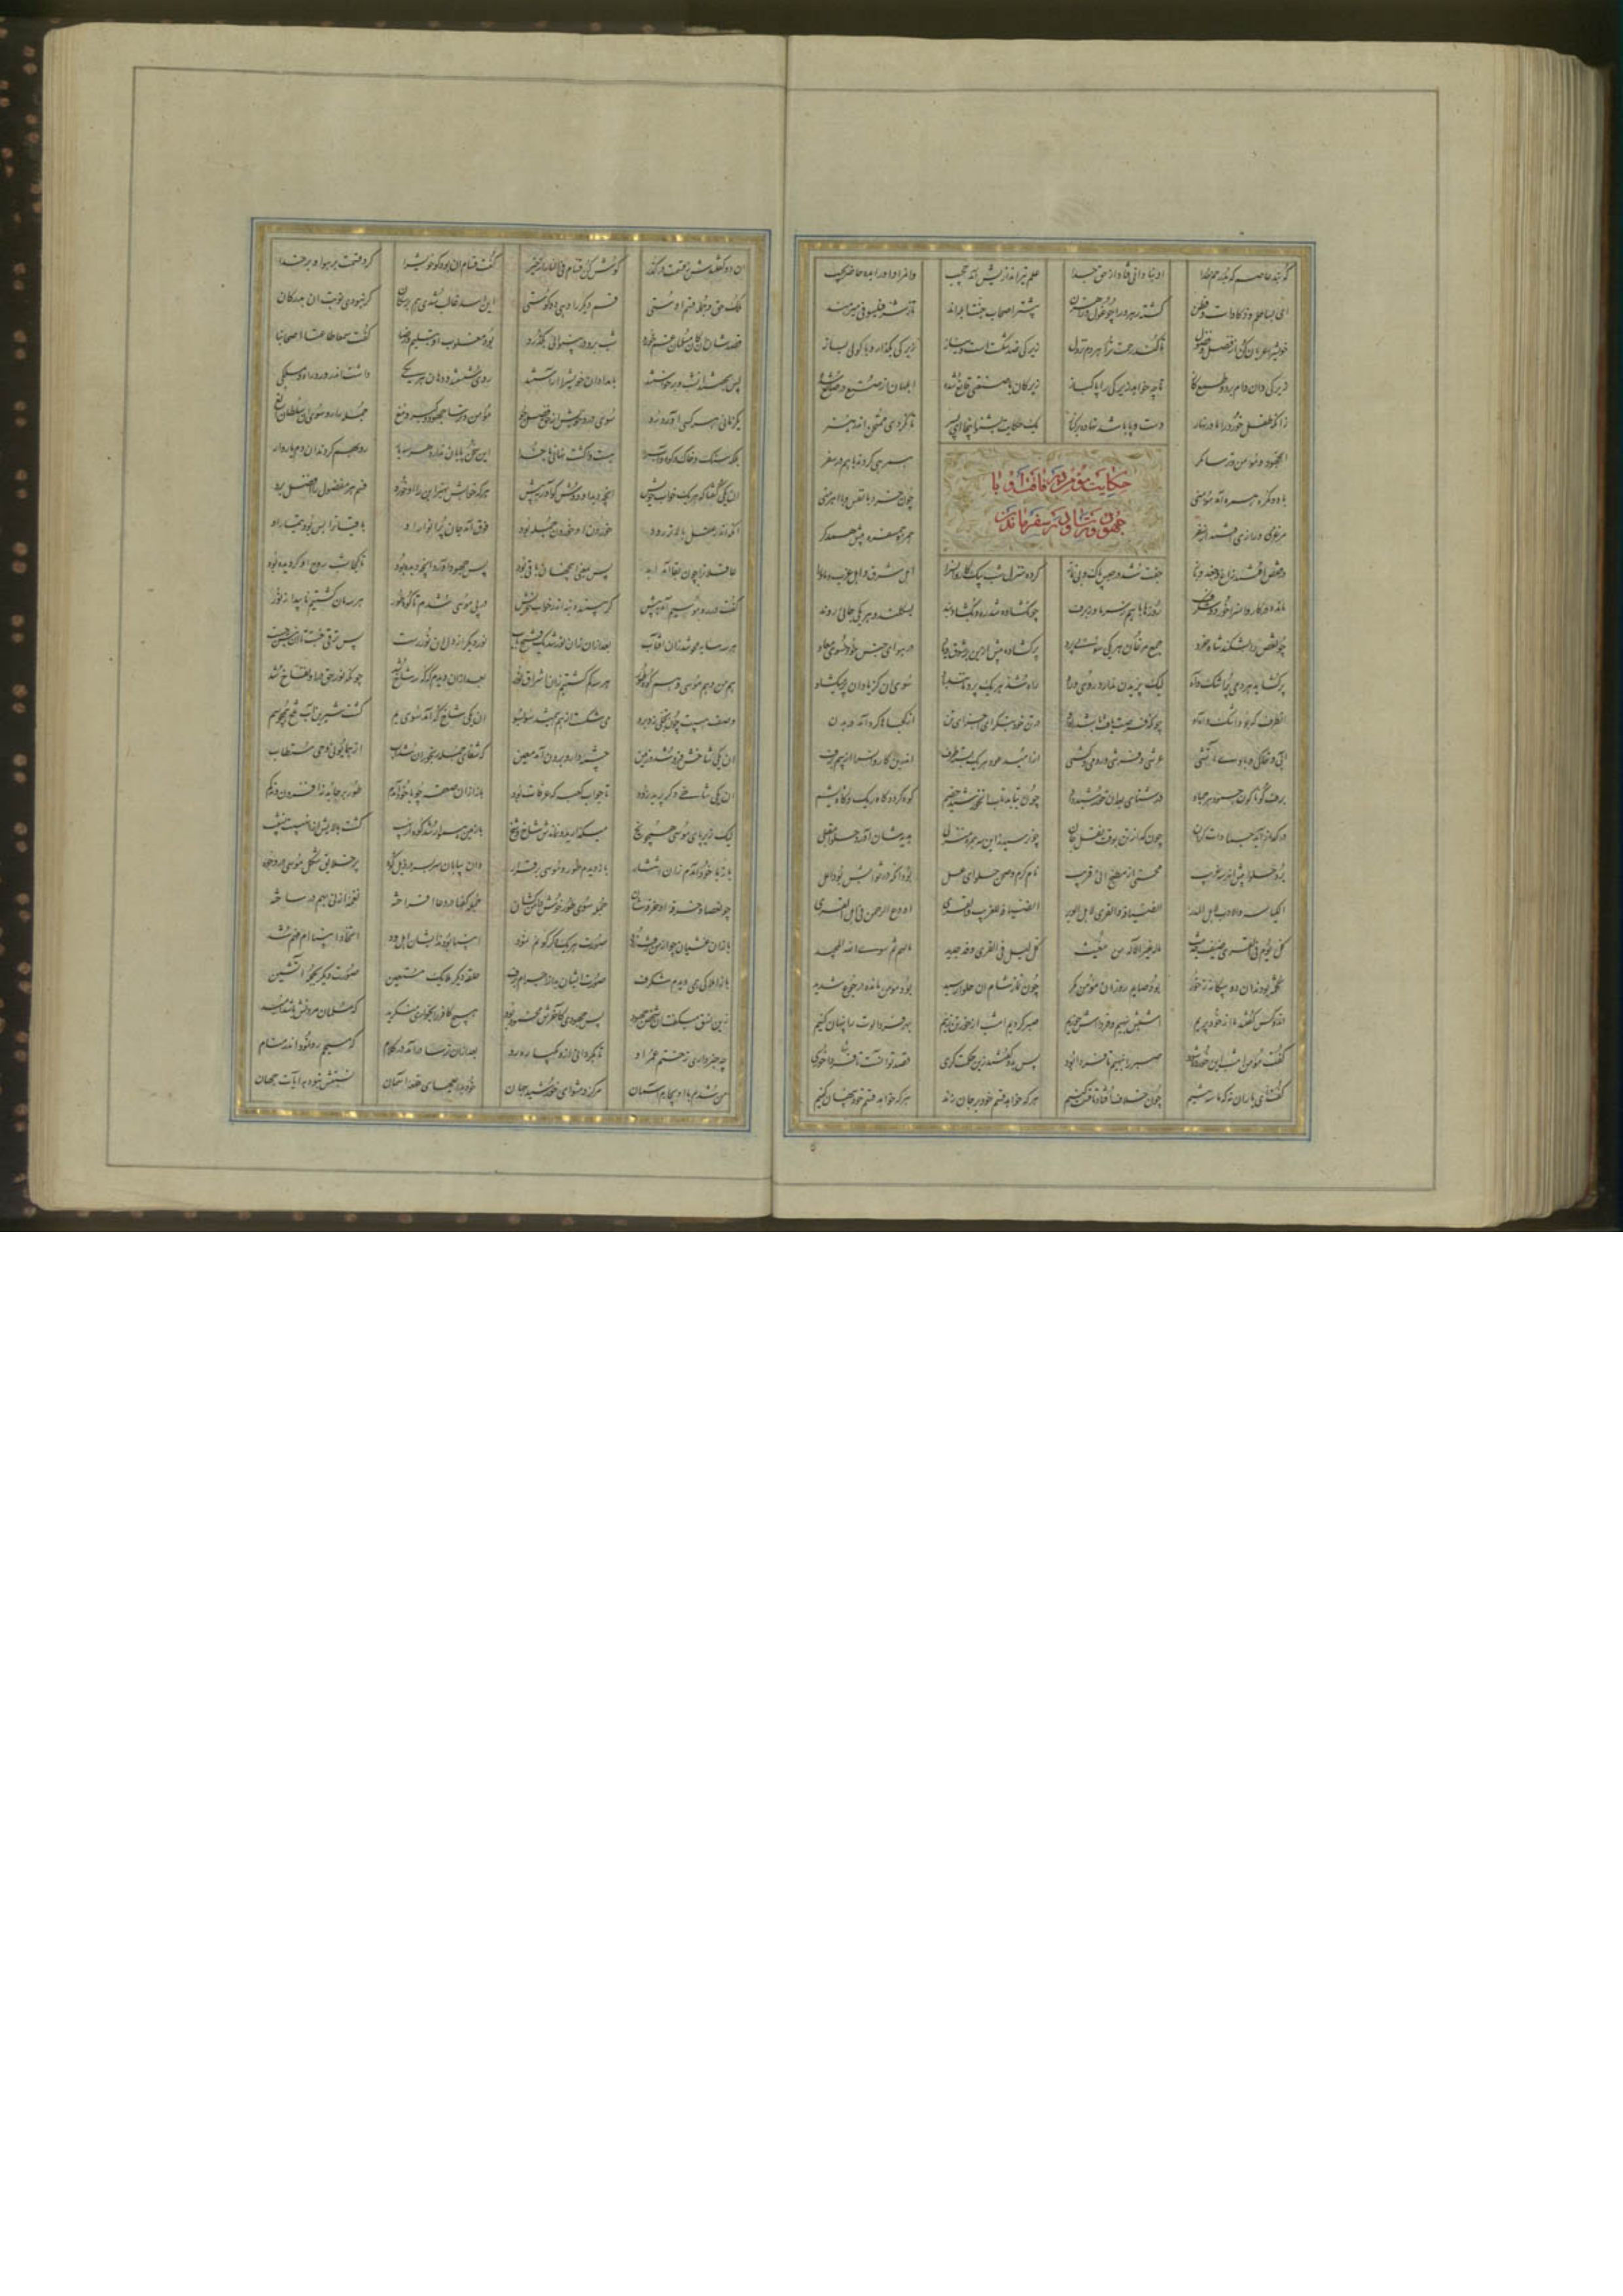 علم تیراندازیش آمد حجیب
ای بسا علم و ذکاوات و فطن گشته رهرو را چو غول و راهزن بیشتر اصحاب جنت ابلهند تا ز شر فیلسوفی میرهند
خویش را عریان کن از فضل و فضول تا کند رحمت هر دم نزول زیرکی ضد شکست است و نیاز زیرکی بگذار و با گولی بساز
زیرکی دان دام برد و طمع و گاز تا چه خواهد زیرکی را پاکباز زیرکان با صنعتی قانع شده ابلهان از صنع در صانع شده
زانکه طفل خرد را مادر نهار دست و پا باشد نهاده بر کنار یک حکایت بشنو اینجا ای پسر تا نگردی ممتحن اندر هنر
حکایت
جهود و ترسا و در سفر
آن جهود و مؤمن و ترسا مگر همرهی کردند با هم در سفر
با دو گمره همره آمد مؤمنی چون خرد با نفس و با آهرمنی
مرغزی و رازی افتند از سفر همره و همسفره پیش همدگر
در قفس افتند زاغ و چغد و باز جفت شد در حبس پاک و بی نماز کرده منزل شب بیک کاروانسرا اهل شرق و اهل غرب و ماورا
مانده در کاروانسرا خرد و شگرف روزها با هم ز سرما و ز برف چون گشاده شد ره و بگشاد بند بسکلند و هر یکی جائی روند
چون قفس را بشکند شاه خرد جمع مرغان هر یکی سوئی پرد پر گشاده پیش ازین بر شوق و یاد در هوای جنس خود سوی معاد
پر گشاید هر دمی با اشک و آه لیک پریدن ندارد روی و راه راه شد هر یک پرد مانند باد سوی آن کز یاد آن پر میگشاد
آنطرف که بود اشک و آه او چونکه فرصت یافت باشد راه او در تن خود بنگر این اجزای تن از کجاها گرد آمد در بدن
آبی و خاکی و بادی و آتشی عرشی و فرشی و رومی و کشی از امید عود هر یک بسته طرف اندرین کاروانسرا از بیم برف
برف گوناگون جمود هر جماد در شتای بعد آن خورشید داد چون بتابد تف آن خورشید خشم کوه گردد گاه ریگ و گاه پشم
در گداز آید جمادات گران چون گداز تن بوقت نقل جان چون رسیدند این سه همره منزلی هدیه شان آورد حلوا مقبلی
برد حلوا پیش آن هر سه غریب محسنی از مطبخ انی قریب نان گرم و صحن حلوای عسل برد آنکه در ثوابش بود امل
الکیاسه والادب لاهل المدر الضیافه والقری لاهل الوبر الضیافه للغریب والقری اودع الرحمن فی اهل القری
کل یوم فی القری ضیف حدیث ماله غیر الاله من مغیث کل لیل فی القری وفد جدید مالهم ثم سوی الله المجید
تخمه بودند آن دو بیگانه ز خور بود صایم روز آن مؤمن مگر چون نماز شام آن حلوا رسید بود مؤمن مانده در جوع شدید
آن دو کس گفتند ما از خور پریم امشبش بنهیم و فردایش خوریم صبر گیریم امشب از خور تن زنیم بهر فردا لوت را پنهان کنیم
گفت مؤمن امشب این خورده شود صبر را بنهیم تا فردا بود پس بدو گفتند زین حکمت گری قصد تو آنست تا تنها خوری
گفت ای یاران نه که ما سه تنیم چون خلاف افتاد تا قسمت کنیم هر که خواهد قسم خود بر جان زند هر که خواهد قسم خود پنهان کند
آن دو گفتندش ز قسمت در گذر گوش کن قسام فی النار از خبر گفت قسام آن بود کو خویش را کرد قسمت بر هوا و بر خدا
ملک حق و جمله قسم اوستی قسم دیگر را دهی دوگوستی این اسد غالب شدی هم بر سگان گر نبودی نوبت آن بدرگان
قصدشان آن کان مسلمان غم خورد شب برو در بینوائی بگذرد بود مغلوب او بتسلیم و رضا گفت سمعا طاعة اصحابنا
پس بخفتند آن شب و برخاستند بامدادان خویش را آراستند روی شستند و دهان و هر یکی داشت اندر ورد راه و مسلکی
یکزمانی هر کسی آورد رو سوی ورد خویش از حق فضل جو مؤمن و ترسا جهود و گبر و مغ جمله را رو سوی آن سلطان الغ
بلکه سنگ و خاک و کوه و آب را هست واگشت نهانی با خدا این سخن پایان ندارد هر سه یار رو بهم کردند آن دم یاروار
آن یکی گفتا که هر یک خواب خویش آنچه دید او دوش گو آور به پیش هر که خوابش بهتر این را او خورد قسم هر مفضول را افضل برد
آنکه اندر عقل بالاتر رود خوردن او خوردن جمله بود فوق آمد جان پر انوار او باقیانرا بس بود تیمار او
عاقلانرا چون بقا آمد ابد پس بمعنی این جهان باقی بود پس جهود آورد آنچه دیده بود تا کجا شب روح او گردیده بود
گفت در ره موسیم آمد به پیش گربه بیند دنبه اندر خواب خویش در پی موسی شدم تا کوه طور هر سه مان گشتیم ناپیدا ز نور
هر سه سایه محو شد زان آفتاب بعد ازان زان نور شد یک فتح باب نور دیگر از دل آن نور رست پس ترقی جست آن ثانیش چست
هم من و هم موسی و هم کوه طور هر سه گم گشتیم زان اشراق نور بعد ازان دیدم که که سه شاخ شد چونکه نور حق درو نفاخ شد
وصف هیبت چون تجلی زد برو می شکست از هم همیشد سو بسو آن یکی شاخ که آمد سوی یم گشت شیرین آب تلخ همچو سم
آن یکی شاخش فرو شد در زمین چشمه دارو برون آمد معین که شفای جمله رنجوران شد آب از همایونی وحی مستطاب
آن یکی شاخی دگر پرید زود تا جوار کعبه که عرفات بود باز ازان صعقه چو با خود آمدم طور بر جا بد نه افزون و نه کم
لیک زیر پای موسی همچو یخ میگدازید او نماندش شاخ و شخ با زمین هموار شد که از نهیب گشت بالایش ازان هیبت نشیب
باز با خود آمدم زان انتشار باز دیدم طور و موسی برقرار وان بیابان سر بسر در ذیل کوه پر خلایق شکل موسی در وجوه
چون عصا و خرقه او خرقه شان جمله سوی طور خوش دامن کشان جمله کفها در دعا افراخته نغمه ارنی بهم در ساخته
باز آن غشیان چو از من رفت زود صورت هر یک دگرگونم نمود انبیا بودند ایشان اهل ود اتحاد انبیاام فهم شد
باز املاکی همی دیدم شگرف صورت ایشان بد از اجرام برف حلقه دیگر ملایک مستعین صورت دیگر بجمله آتشین
زین نسق میگفت آن شخص جهود بس جهودی کآخرش محمود بود هیچ کافر را بخواری منگرید که مسلمان مردنش باشد امید
چه خبر داری ز ختم عمر او تا بگردانی ازو یکباره رو بعد ازان ترسا درآمد در کلام که مسیحم رو نمود اندر منام
من شدم با او بچارم آسمان مرکز و مثوای خورشید جهان خود عجبهای قلاع آسمان نسبتش نبود بآیات جهان